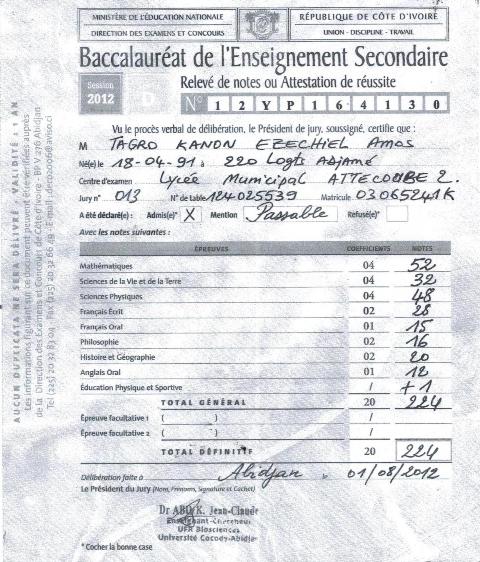 MINISTÈRE DE L'ÉDUCATION NATIONALE
DIRECTION DES EXAMENS ET CONCOURS
RÉPUBLIQUE DE CÔTE D'IVOIRE
UNION - DISCIPLINE - TRAVAIL
Baccalauréat de l'Enseignement Secondaire
Session 2012 D
Relevé de notes ou Attestation de réussite
N° 12YP164130
Vu le procès verbal de délibération, le Président de jury, soussigné, certifie que :
M TAGRO KANON EZECHIEL Amos
Né(e) le 18-04-91 à 220 Logts Adjamé
Centre d'examen Lycée Municipal ATTECOUBE 2.
Jury n° 013 N° de table 124025539 Matricule 03065241K
A été déclaré(e) : Admis(e)* X Mention Passable Refusé(e)*
Avec les notes suivantes :
ÉPREUVES COEFFICIENTS NOTES
Mathématiques 04 52
Sciences de la Vie et de la Terre 04 32
Sciences Physiques 04 48
Français Écrit 02 28
Français Oral 01 15
Philosophie 02 16
Histoire et Géographie 02 20
Anglais Oral 01 12
Éducation Physique et Sportive / +1
TOTAL GÉNÉRAL 20 224
Épreuve facultative 1 ( ) /
Épreuve facultative 2 ( ) /
TOTAL DÉFINITIF 20 224
Délibération faite à Abidjan, le 01/08/2012
Le Président du Jury (Nom, Prénoms, Signature et Cachet)
Dr ABO K. Jean-Claude
Enseignant-Chercheur
UFR Biosciences
Université Cocody-Abidjan
* Cocher la bonne case
AUCUN DUPLICATA NE SERA DÉLIVRÉ - VALIDITÉ : 1 AN
Les informations figurant sur ce document peuvent être vérifiées auprès
de la Direction des Examens et Concours de Côte d'Ivoire - BP V 276 Abidjan